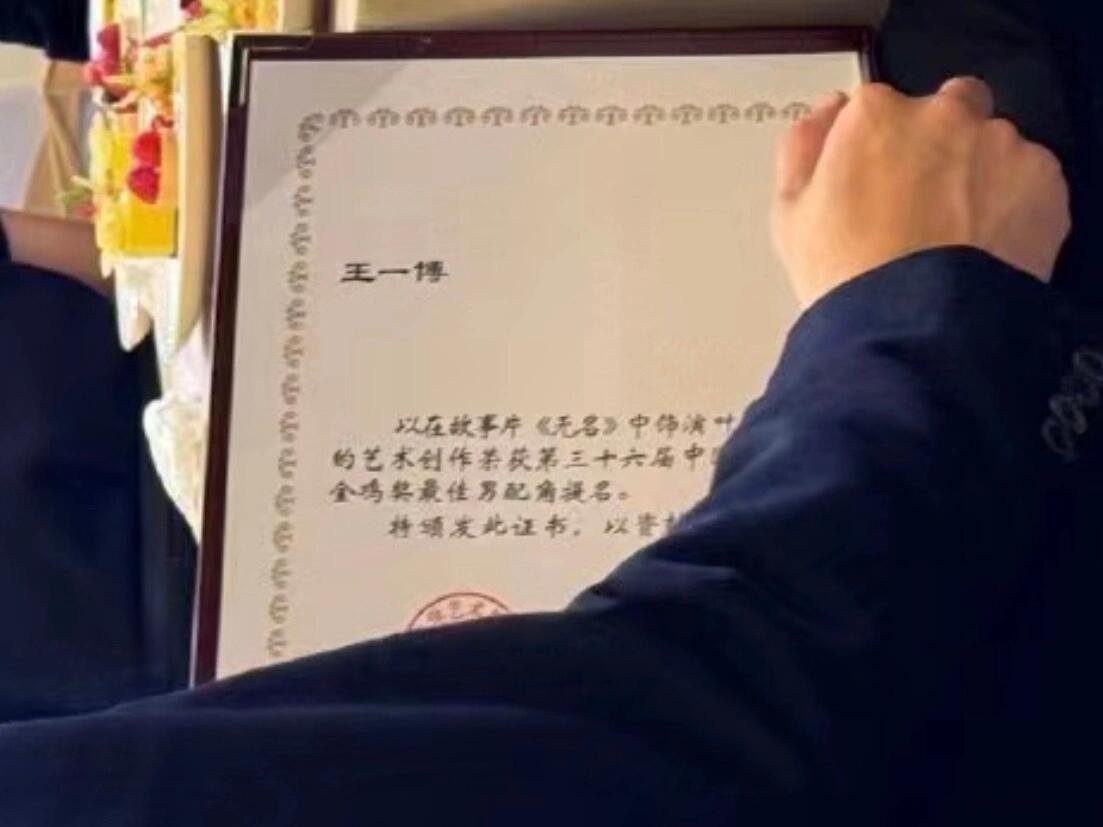 王一博
以在故事片《无名》中饰演叶
的艺术创作荣获第三十六届中
金鸡奖最佳男配角提名。
特颁发此证书，以资
艺术